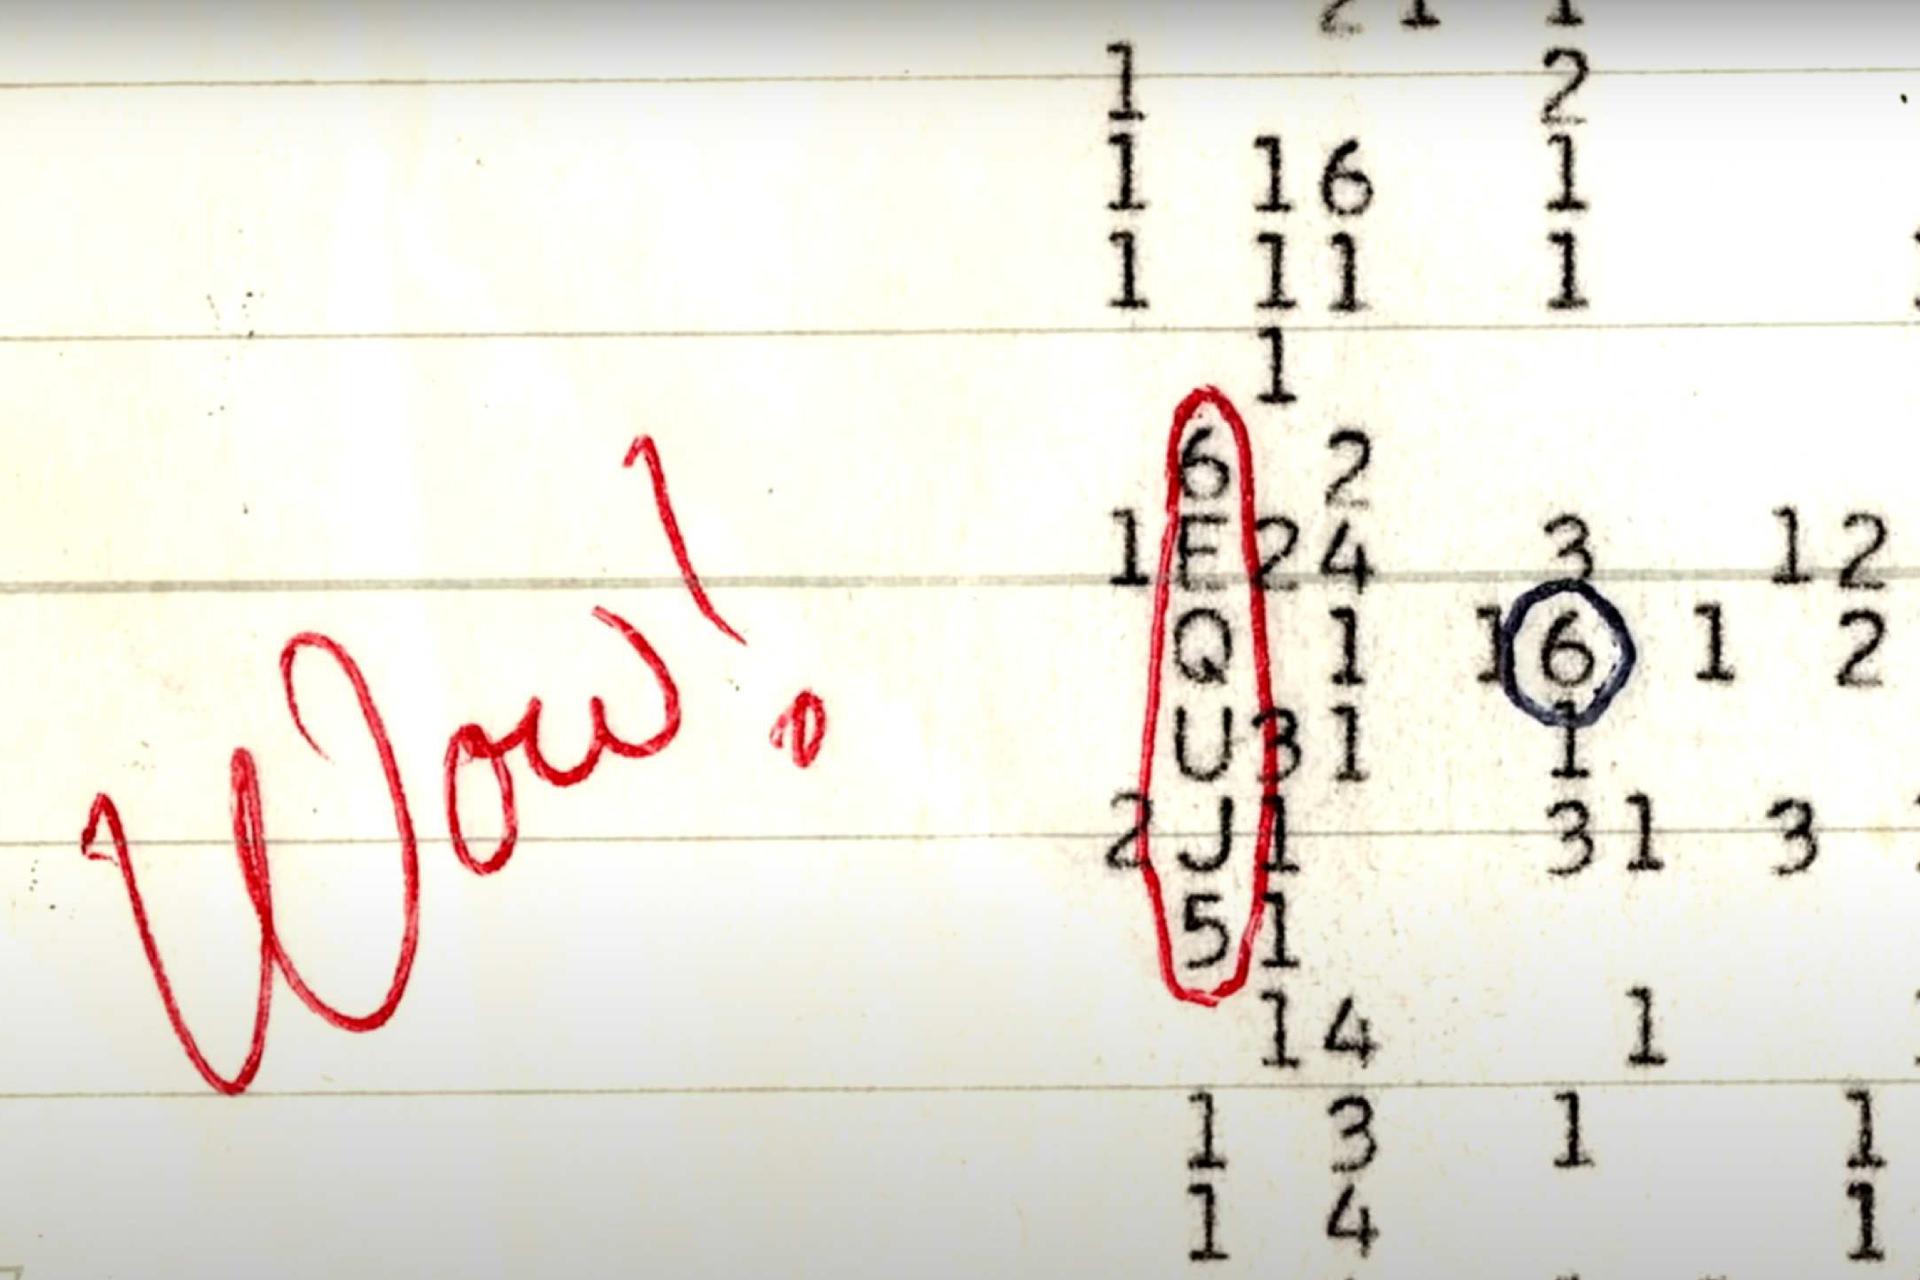 2 1 1
1 2
1 1 6 1
1 1 1 1
1
6 2
1 E 2 4 3 1 2
Q 1 1 6 1 2
U 3 1 1
2 J 1 3 1 3
5 1
1 4 1
1 3 1 1
1 4 1
Wow!